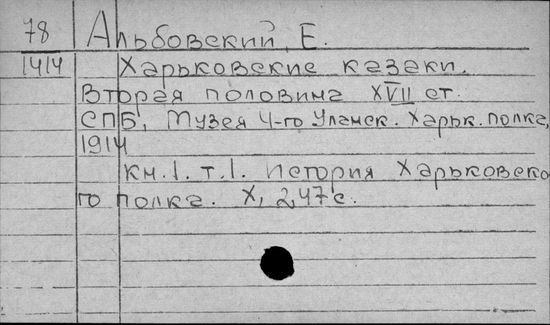 78 Альбовский, Е.
1414 Харьковские казаки.
Вторая половина XVII ст.
СПБ, Музея 4-го Уланск. Харьк. полка,
1914
Кн. 1. т. 1. История Харьковско
го полка. X, 247 с.